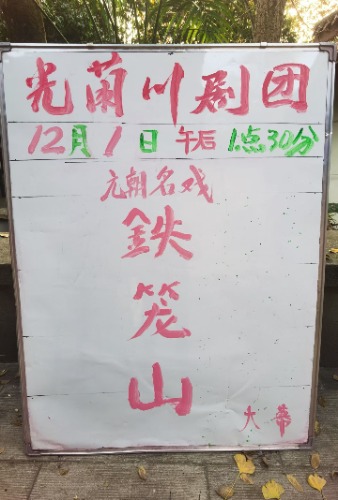 光川剧团
12月1日 午后 1点30分
元朝名戏
鉄
笼
山
大幕